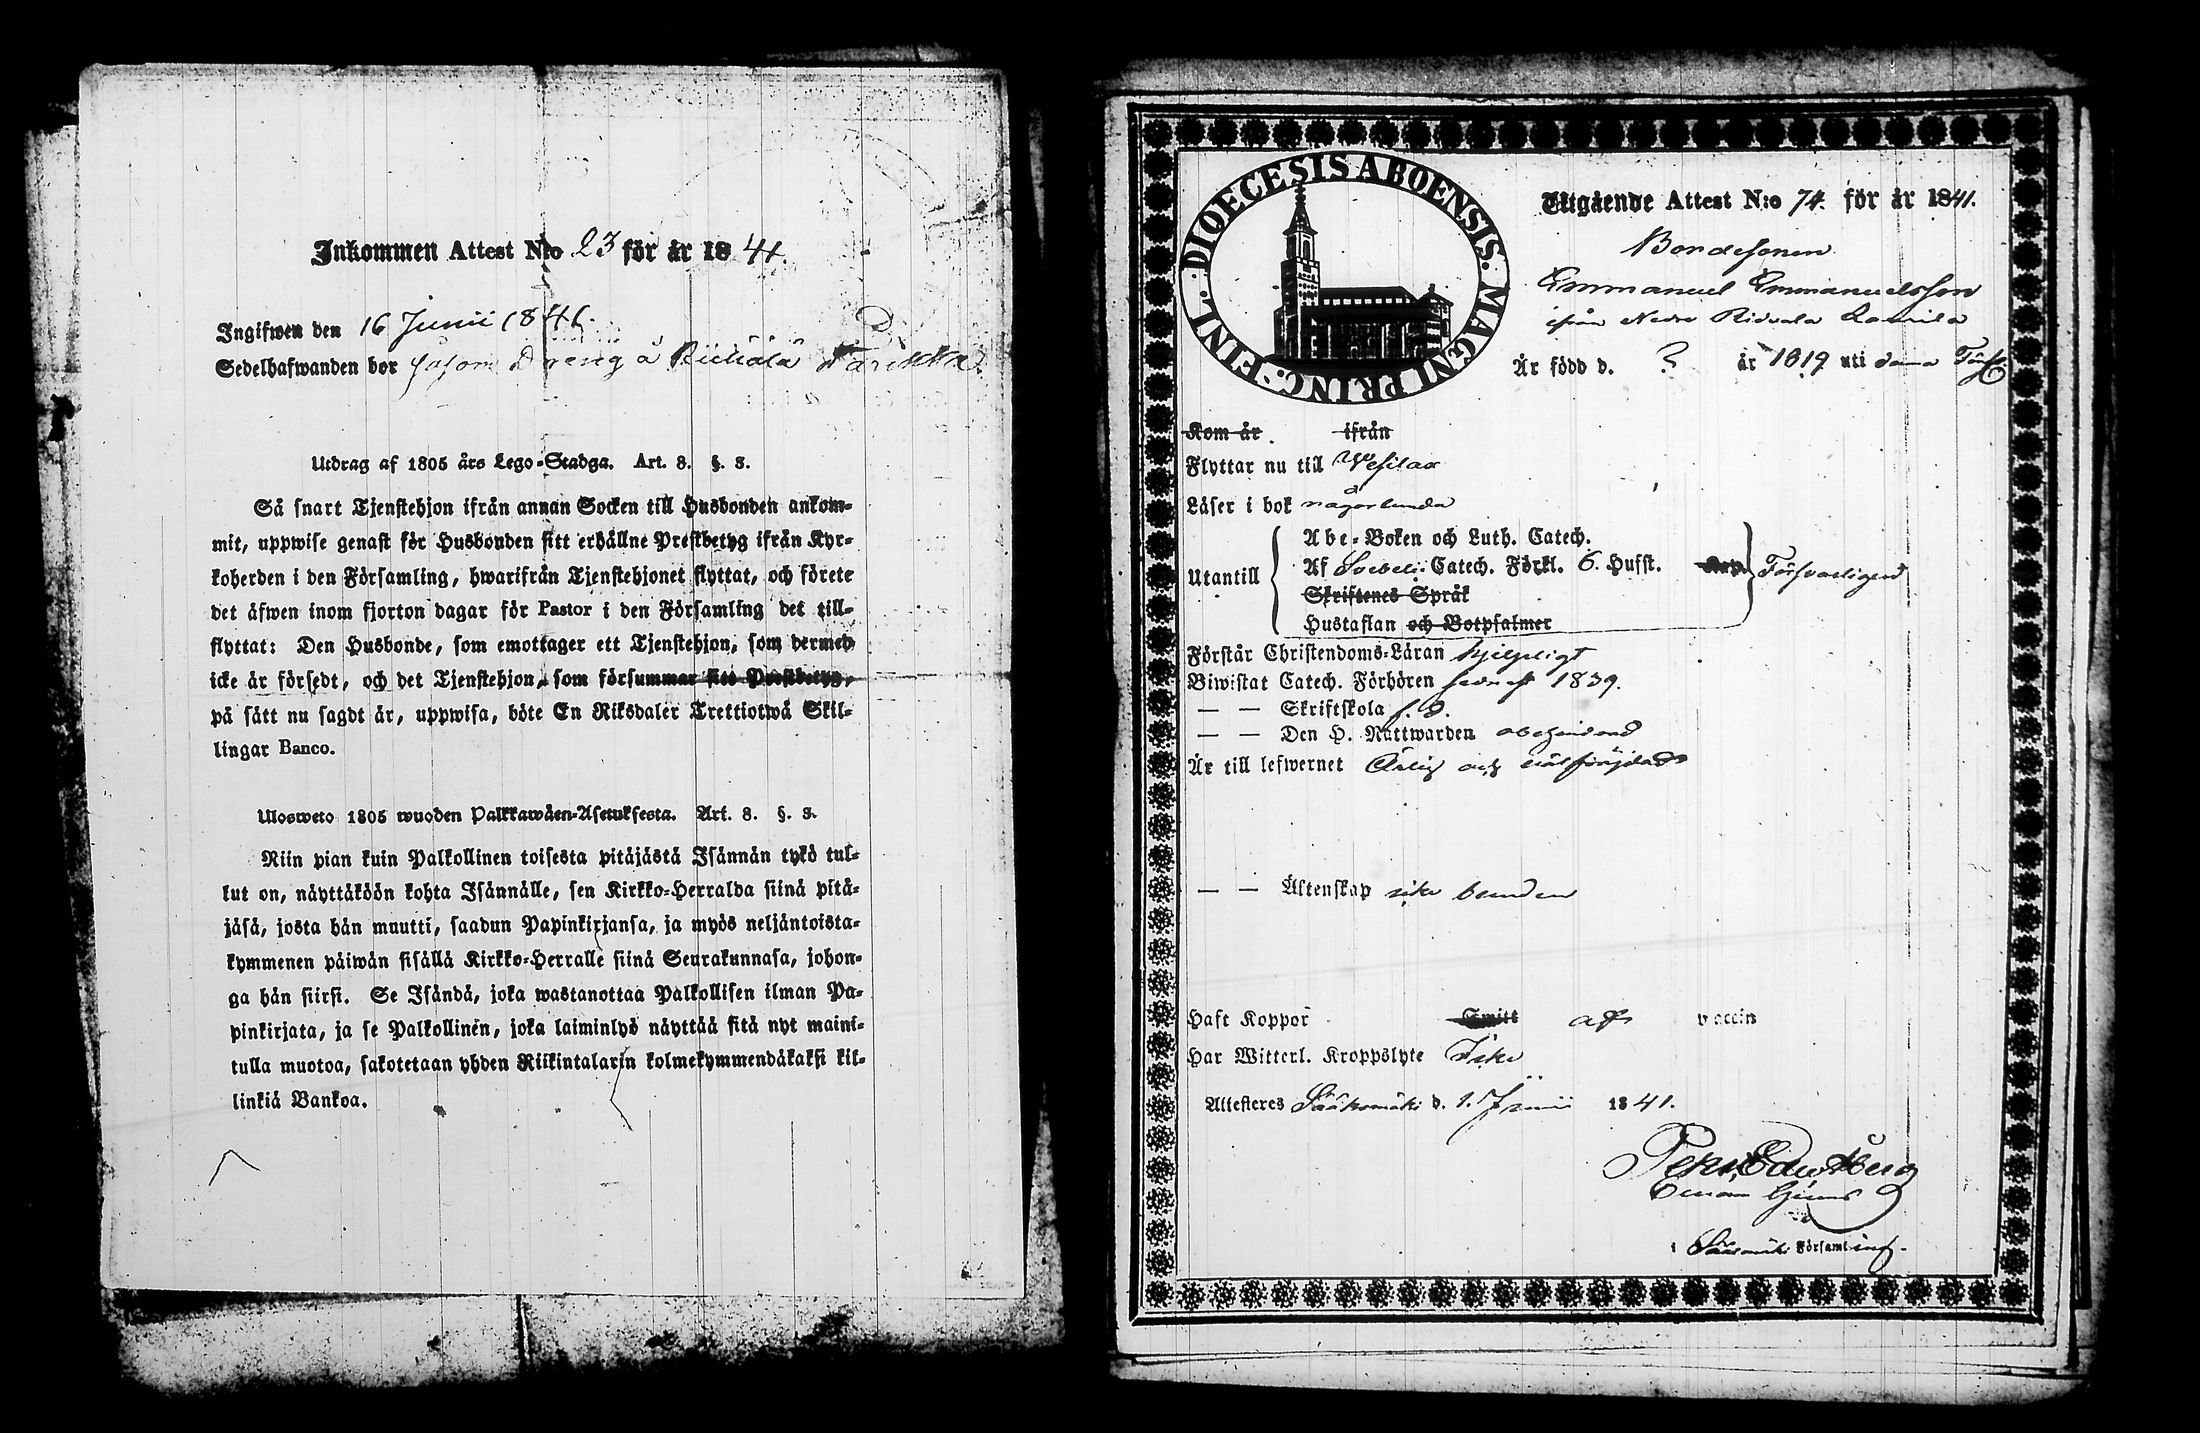 Inkommen Attest N:o 23 för år 1841.
Ingifwen den 16 Junii 1841.
Sedelhafwanden bor såsom Dräng å
Utdrag af 1805 års Lego-Stadga. Art. 8. §. 3.
Så snart Tjenstehjon ifrån annan Socken till Husbonden ankom-
mit, uppwise genast för Husbonden sitt erhållne Prestbetyg ifrån Kyr-
koherden i den Församling, hwarifrån Tjenstehjonet flyttat, och förete
det äfwen inom fjorton dagar för Pastor i den Församling det till-
flyttat: Den Husbonde, som emottager ett Tjenstehjon, som dermed
icke är försedt, och det Tjenstehjon, som försummar sitt Prestbetyg,
på sätt nu sagdt är, uppwisa, böte En Riksdaler Trettiotwå Skil-
lingar Banco.
Ulosweto 1805 wuoden Palkkawäen-Asetuksesta. Art. 8. §. 3.
Niin pian kuin Palkollinen toisesta pitäjästä Isännän tykö tul-
lut on, näyttäköön kohta Isännälle, sen Kirkko-Herralda siinä pitä-
jäsä, josta hän muutti, saadun Papinkirjansa, ja myös neljäntoista-
kymmenen päiwän sisällä Kirkko-Herralle siinä Seurakunnasa, johon-
ga hän siirsi. Se Isändä, joka wastanottaa Palkollisen ilman Pa-
pinkirjata, ja se Palkollinen, joka laiminlyö näyttää sitä nyt maini-
tulla muotoa, sakotetaan yhden Riikintalarin kolmekymmendäkaksi kil-
linkiä Bankoa.
DIOECESIS ABOENSIS. MAGNI PRINC. FINL.
Utgående Attest N:o 74. för år 1841.
Bondesonen
Emmanuel Emmanuelsson
ifrån Nedre Ridvala
Är född d. ? år 1819 uti denna Förs.
Kom år ifrån
Flyttar nu till Wesilax
Läser i bok någorlunda
Utantill
Abe-Boken och Luth. Catech.
Af Svebelii Catech. Förkl. 6. Hufst. Kap.
Skriftenes Språk
Hustaflan och Botpsalmer
Försvarligen
Förstår Christendoms-Läran hjelpligt
Biwistat Catech. Förhören 1839.
— — Skriftskola
— — Den H. Nattwarden obehindrad
Är till lefwernet Ärlig och välfrejdad
— — Äktenskap icke bunden
Haft Koppor Smitt af vaccin
Har Witterl. Kroppslyte Icke
Attesteras Sääksmäki d. 1. Junii 1841.
Pehr Edv. Åberg
i Sääksmäki Församling.